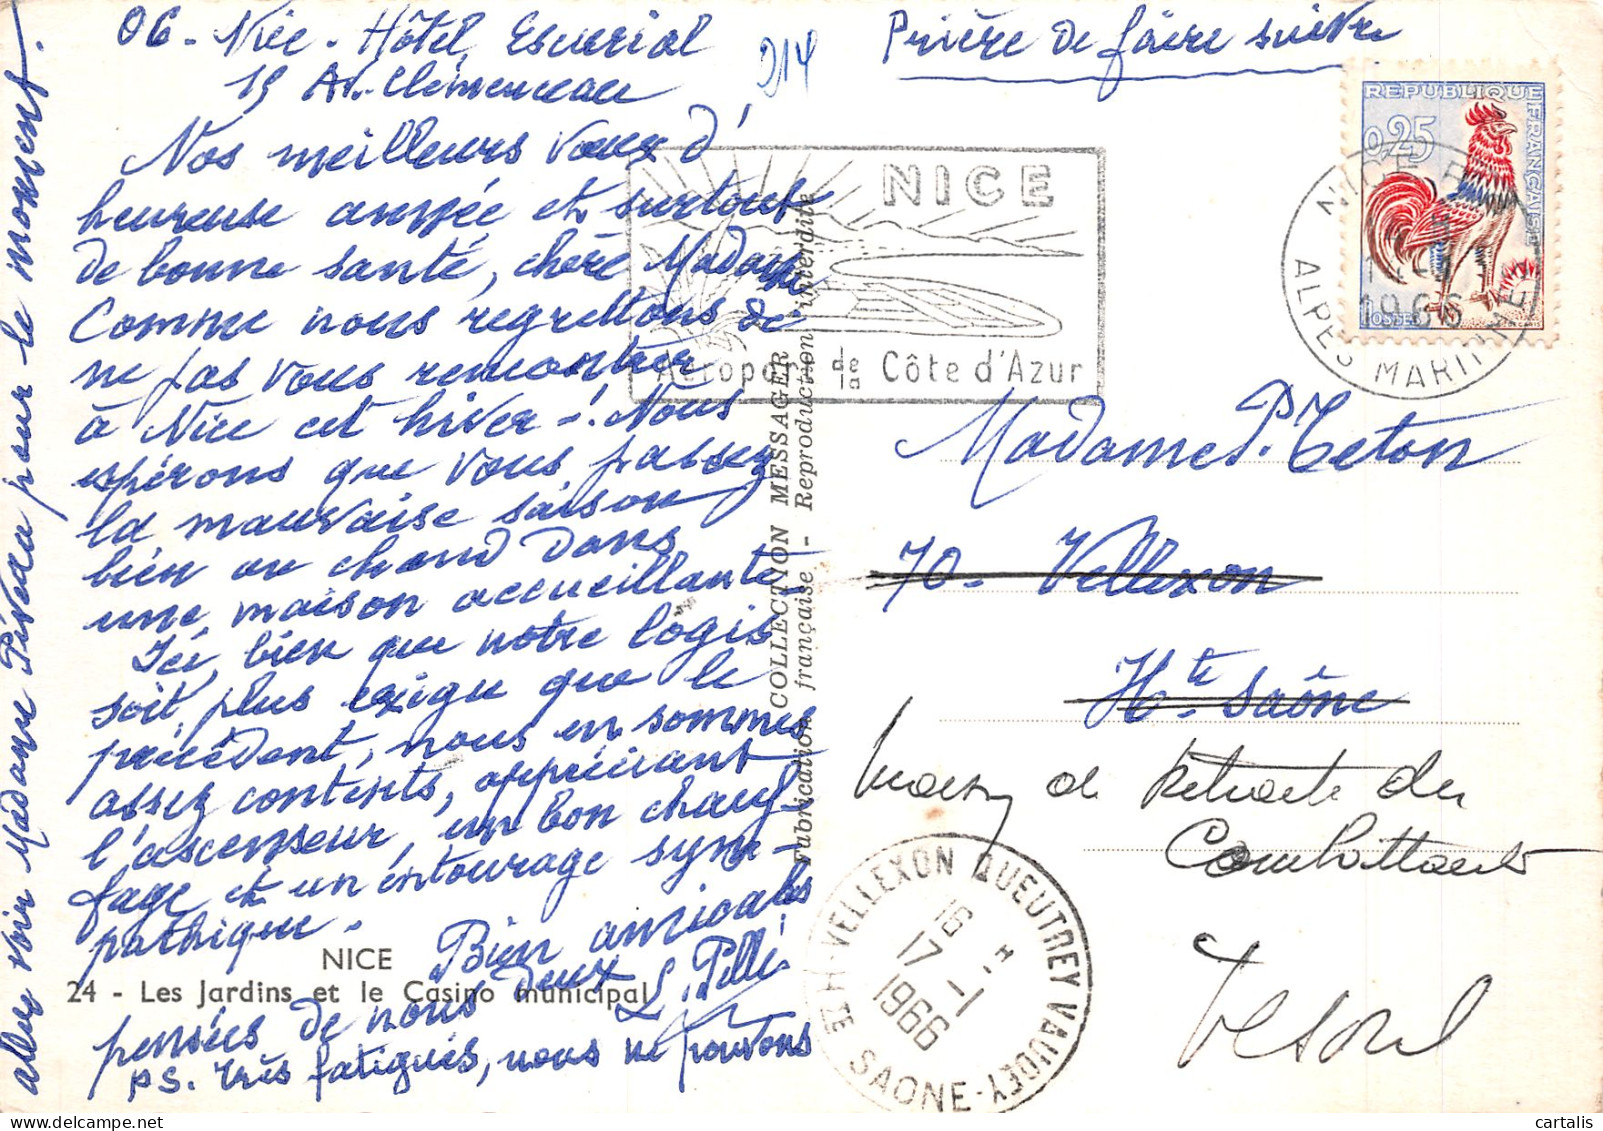 06 - Nice - Hôtel Escurial
19 Av. Clémenceau
Nos meilleurs vœux d'
heureuse année et surtout
de bonne santé, chère Madame
Comme nous regrettons de
ne pas vous rencontrer
à Nice cet hiver -! Nous
espérons que vous passez
la mauvaise saison
bien au chaud dans
une maison accueillante,
Ici, bien que notre logis
soit plus exigu que le
précédent, nous en sommes
assez contents, appréciant
l'ascenseur, un bon chauf-
fage et un entourage sym-
pathique.
Bien amicales
pensées de nous deux L. Pillé
PS. très fatigués, nous ne pouvons
aller voir Madame Piveau pour le moment.
NICE
24 - Les Jardins et le Casino municipal
COLLECTION MESSAGER
Fabrication française - Reproduction interdite
914
Prière de faire suivre
NICE
Aéroport de la Côte d'Azur
REPUBLIQUE FRANÇAISE
0,25
POSTES
NICE
1966
ALPES MARITIMES
Madame P. Teton
70 - Vellexon
Hte Saône
de Retraite des
Combattants
Vesoul
VELLEXON QUEUTREY VAUDEY
16 H
17 - 1
1966
HTE SAONE
cartalis